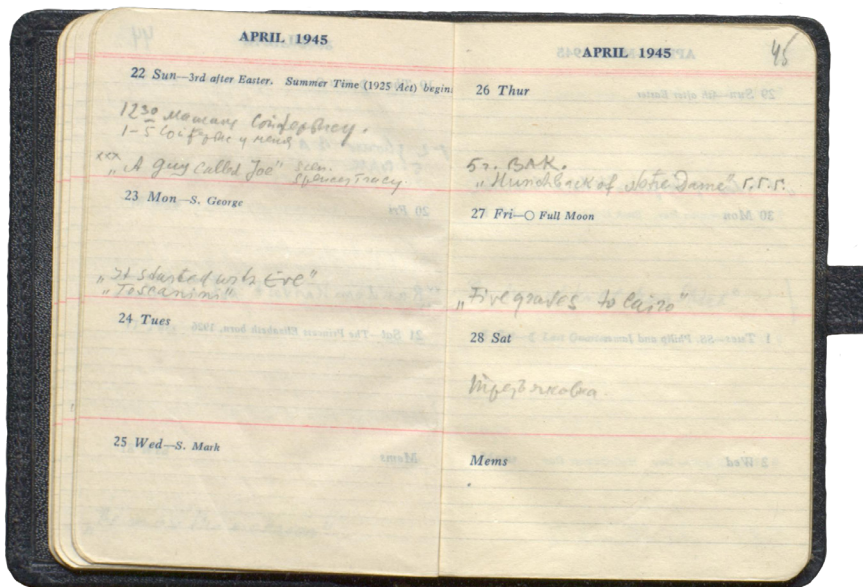 APRIL 1945
22 Sun—3rd after Easter. Summer Time (1925 Act) begins
12 30
1-5 у меня
"A guy called Joe"
Spencer Tracy
23 Mon—S. George
„It started with Eve"
„Toscanini"
24 Tues
25 Wed—S. Mark
APRIL 1945
45
26 Thur
5ч. ВАК.
„Hunchback of Notre Dame" г.г.г.
27 Fri—○ Full Moon
„Five graves to Cairo"
28 Sat
Третьяковка.
Mems